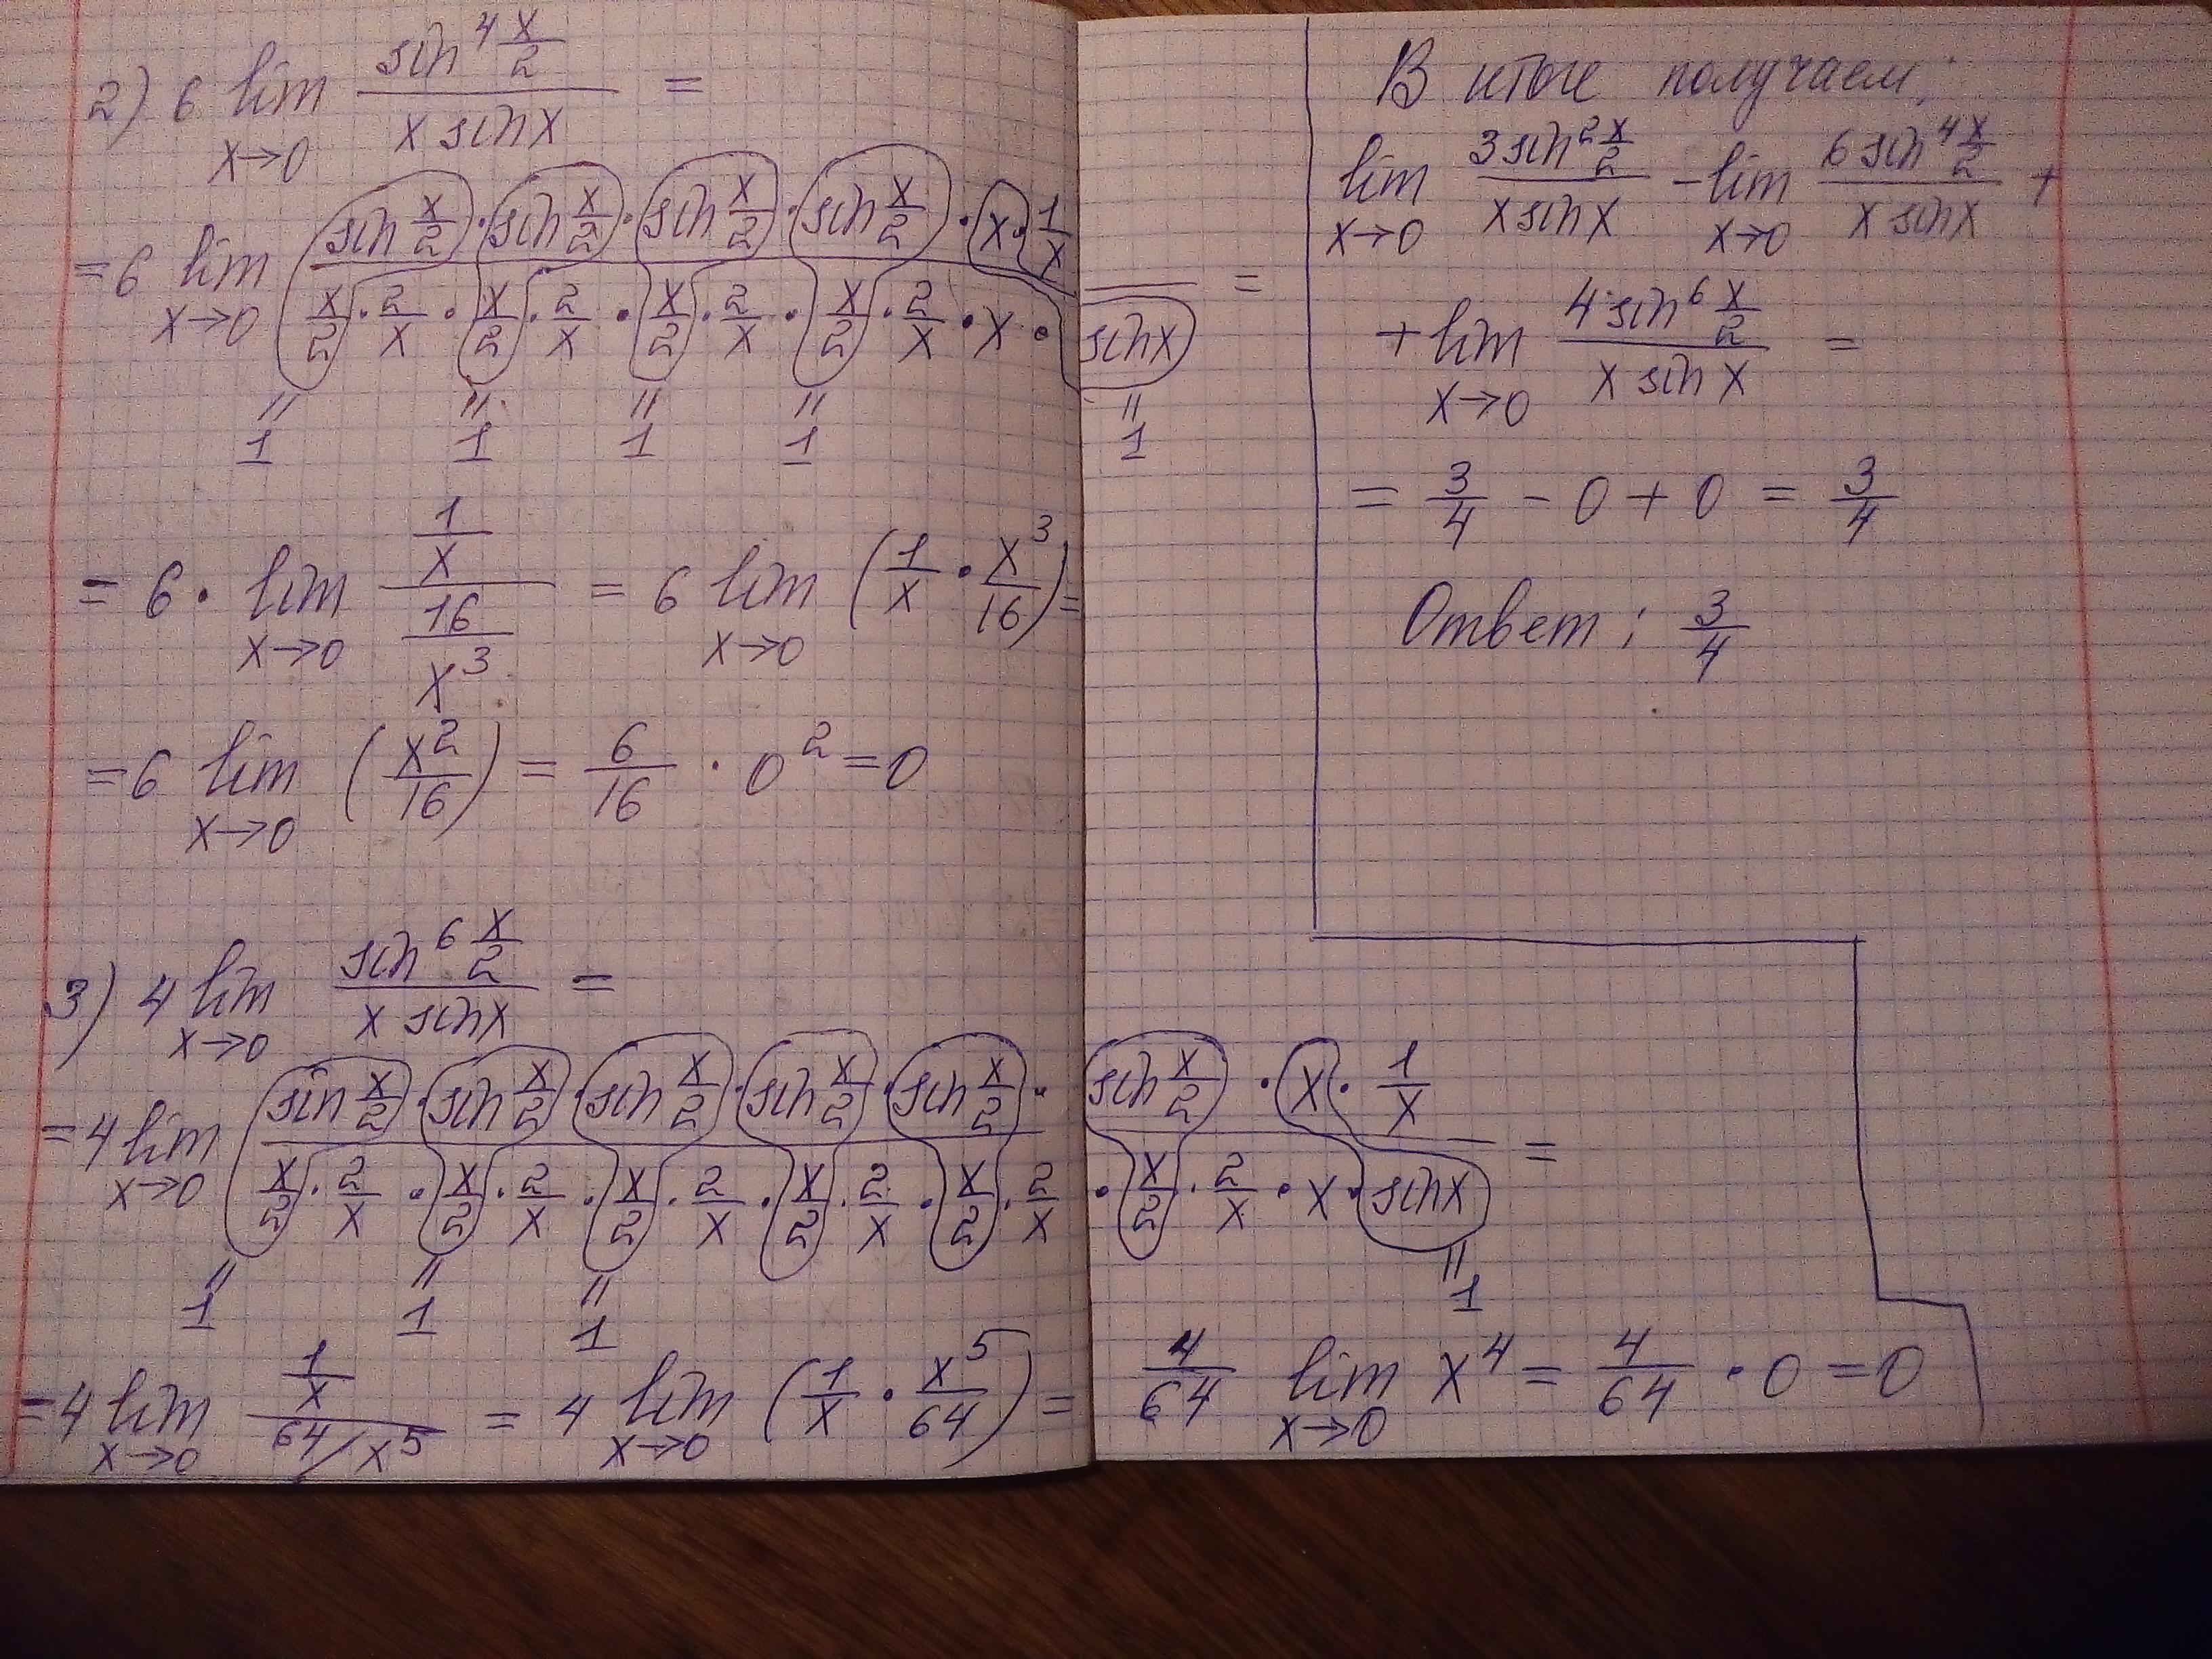 2) 6 lim x→0 sin⁴ x/2 / x sin x =
= 6 lim x→0 sin x/2 · sin x/2 · sin x/2 · sin x/2 · x · 1/x / x/2 · 2/x · x/2 · 2/x · x/2 · 2/x · x/2 · 2/x · x · sin x =
= 1 = 1 = 1 = 1 = 1
= 6 · lim x→0 1/x / 16/x³ = 6 lim x→0 (1/x · x³/16) =
= 6 lim x→0 (x²/16) = 6/16 · 0² = 0
3) 4 lim x→0 sin⁶ x/2 / x sin x =
= 4 lim x→0 sin x/2 · sin x/2 · sin x/2 · sin x/2 · sin x/2 · sin x/2 · x · 1/x / x/2 · 2/x · x/2 · 2/x · x/2 · 2/x · x/2 · 2/x · x/2 · 2/x · x/2 · 2/x · x · sin x =
= 1 = 1 = 1 = 1
= 4 lim x→0 1/x / 64/x⁵ = 4 lim x→0 (1/x · x⁵/64) = 4/64 lim x→0 x⁴ = 4/64 · 0 = 0
В итоге получаем:
lim x→0 3 sin² x/2 / x sin x − lim x→0 6 sin⁴ x/2 / x sin x +
+ lim x→0 4 sin⁶ x/2 / x sin x =
= 3/4 − 0 + 0 = 3/4
Ответ: 3/4